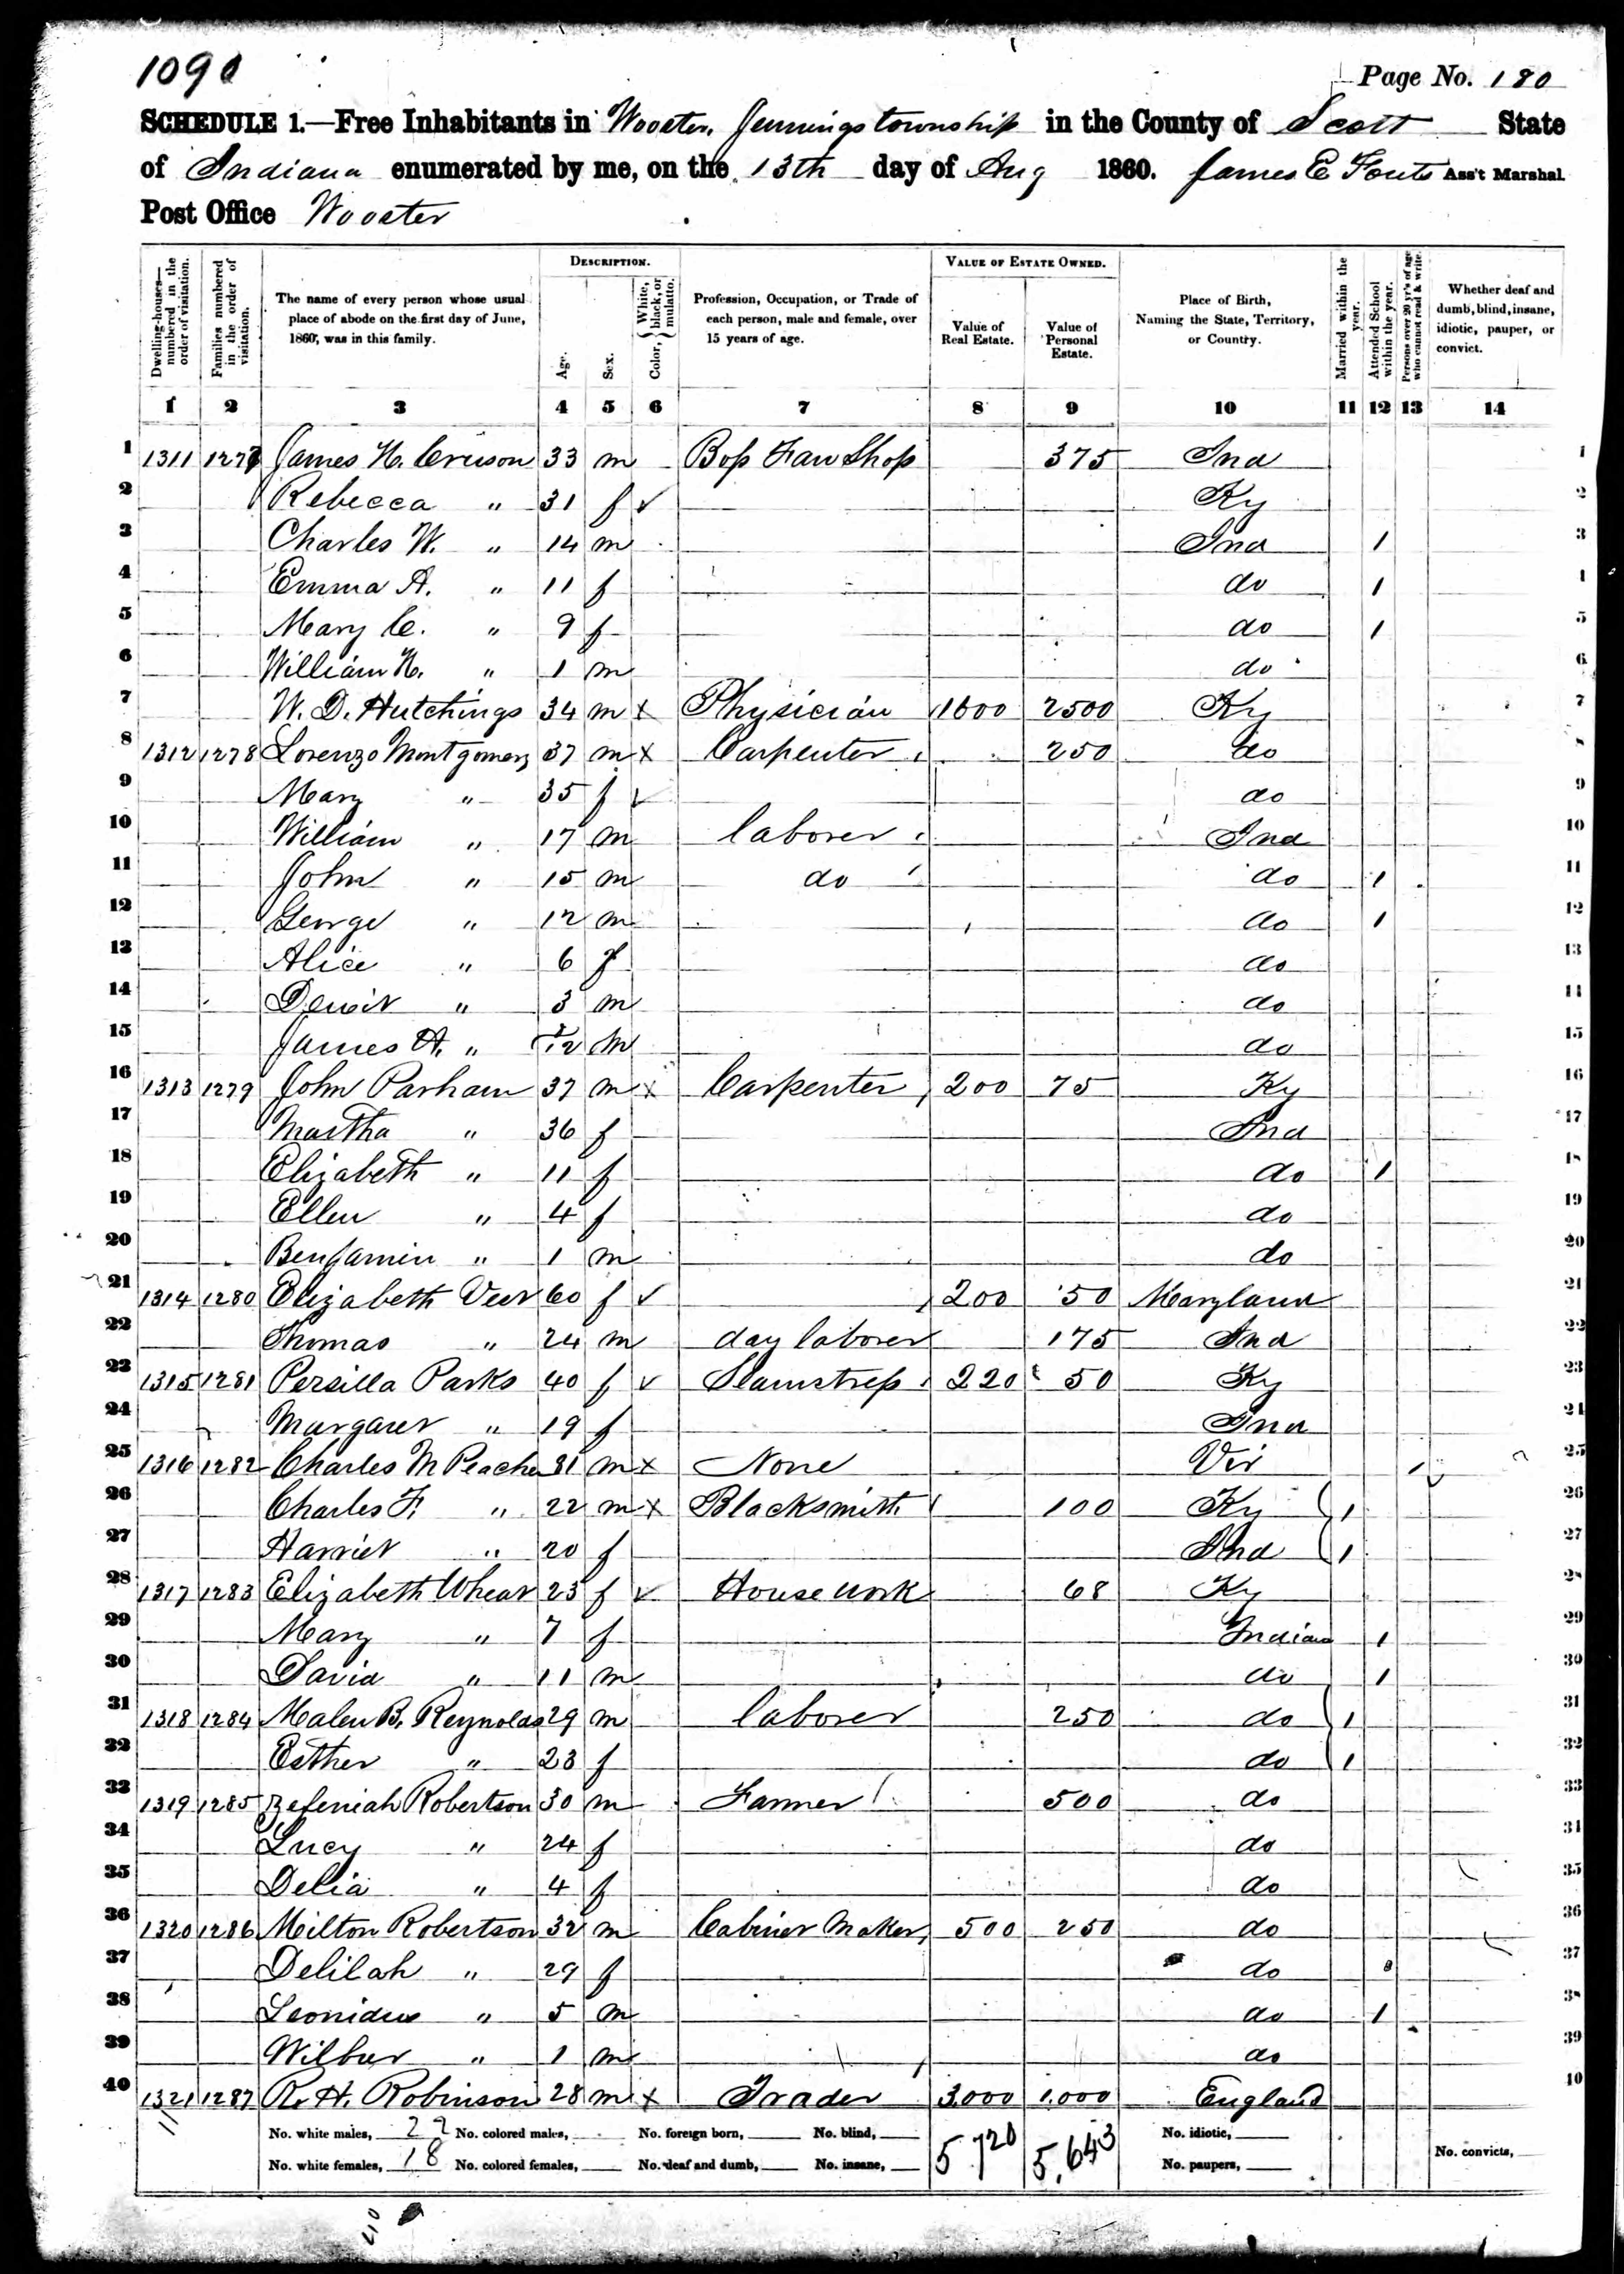 1090
Page No. 180
SCHEDULE 1.—Free Inhabitants in Wooster, Jennings township in the County of Scott State
of Indiana enumerated by me, on the 13th day of Aug 1860. James E Fouts Ass't Marshal.
Post Office Wooster
Dwelling-houses—numbered in the order of visitation.
Families numbered in the order of visitation.
The name of every person whose usual place of abode on the first day of June, 1860, was in this family.
DESCRIPTION.
Age.
Sex.
Color, { White, black, or mulatto.
Profession, Occupation, or Trade of each person, male and female, over 15 years of age.
VALUE OF ESTATE OWNED.
Value of Real Estate.
Value of Personal Estate.
Place of Birth, Naming the State, Territory, or Country.
Married within the year.
Attended School within the year.
Persons over 20 yr's of age who cannot read & write.
Whether deaf and dumb, blind, insane, idiotic, pauper, or convict.
1 2 3 4 5 6 7 8 9 10 11 12 13 14
1 1311 1277 James H. Cruson 33 m 375 Ind 1
2 Rebecca " 31 f ✓ Ky 2
3 Charles W. " 14 m Ind / 3
4 Emma A. " 11 f do / 4
5 Mary C. " 9 f do / 5
6 William H. " 1 m do 6
7 W. D. Hutchings 34 m x Physician 1600 2500 Ky 7
8 1312 1278 Lorenzo Montgomery 37 m x Carpenter 250 do 8
9 Mary " 35 f ✓ do 9
10 William " 17 m laborer Ind 10
11 John " 15 m do do / 11
12 George " 12 m do / 12
13 Alice " 6 f do 13
14 " 3 m do 14
15 James A. " m do 15
16 1313 1279 John Parham 37 m x Carpenter 200 75 Ky 16
17 Martha " 36 f Ind 17
18 Elizabeth " 11 f do / 18
19 Ellen " 4 f do 19
20 Benjamin " 1 m do 20
21 1314 1280 Elizabeth 60 f ✓ 200 50 Maryland 21
22 Thomas " 24 m day laborer 175 Ind 22
23 1315 1281 Persilla Parks 40 f ✓ Seamstress 220 50 Ky 23
24 Margaret " 19 f Ind 24
25 1316 1282 Charles M 81 m x None Vir / 25
26 Charles F. " 22 m x Blacksmith 100 Ky / 26
27 Harriet " 20 f Ind / 27
28 1317 1283 Elizabeth Wheat 23 f ✓ House work 68 Ky 28
29 Mary " 7 f Indiana / 29
30 David " 11 m do / 30
31 1318 1284 B. Reynolds 29 m laborer 250 do / 31
32 Esther " 23 f do / 32
33 1319 1285 Zefeniah Robertson 30 m Farmer 500 do 33
34 Lucy " 24 f do 34
35 Delia " 4 f do 35
36 1320 1286 Milton Robertson 32 m Cabinet Maker 500 250 do 36
37 Delilah " 29 f do 37
38 Leonidus " 5 m do / 38
39 Wilbur " 1 m do 39
40 1321 1287 R. H. Robinson 28 m x Trader 3,000 1,000 England 40
No. white males, 22 No. colored males, No. foreign born, No. blind, 5,720 5,643 No. idiotic,
No. white females, 18 No. colored females, No. deaf and dumb, No. insane, No. paupers, No. convicts,